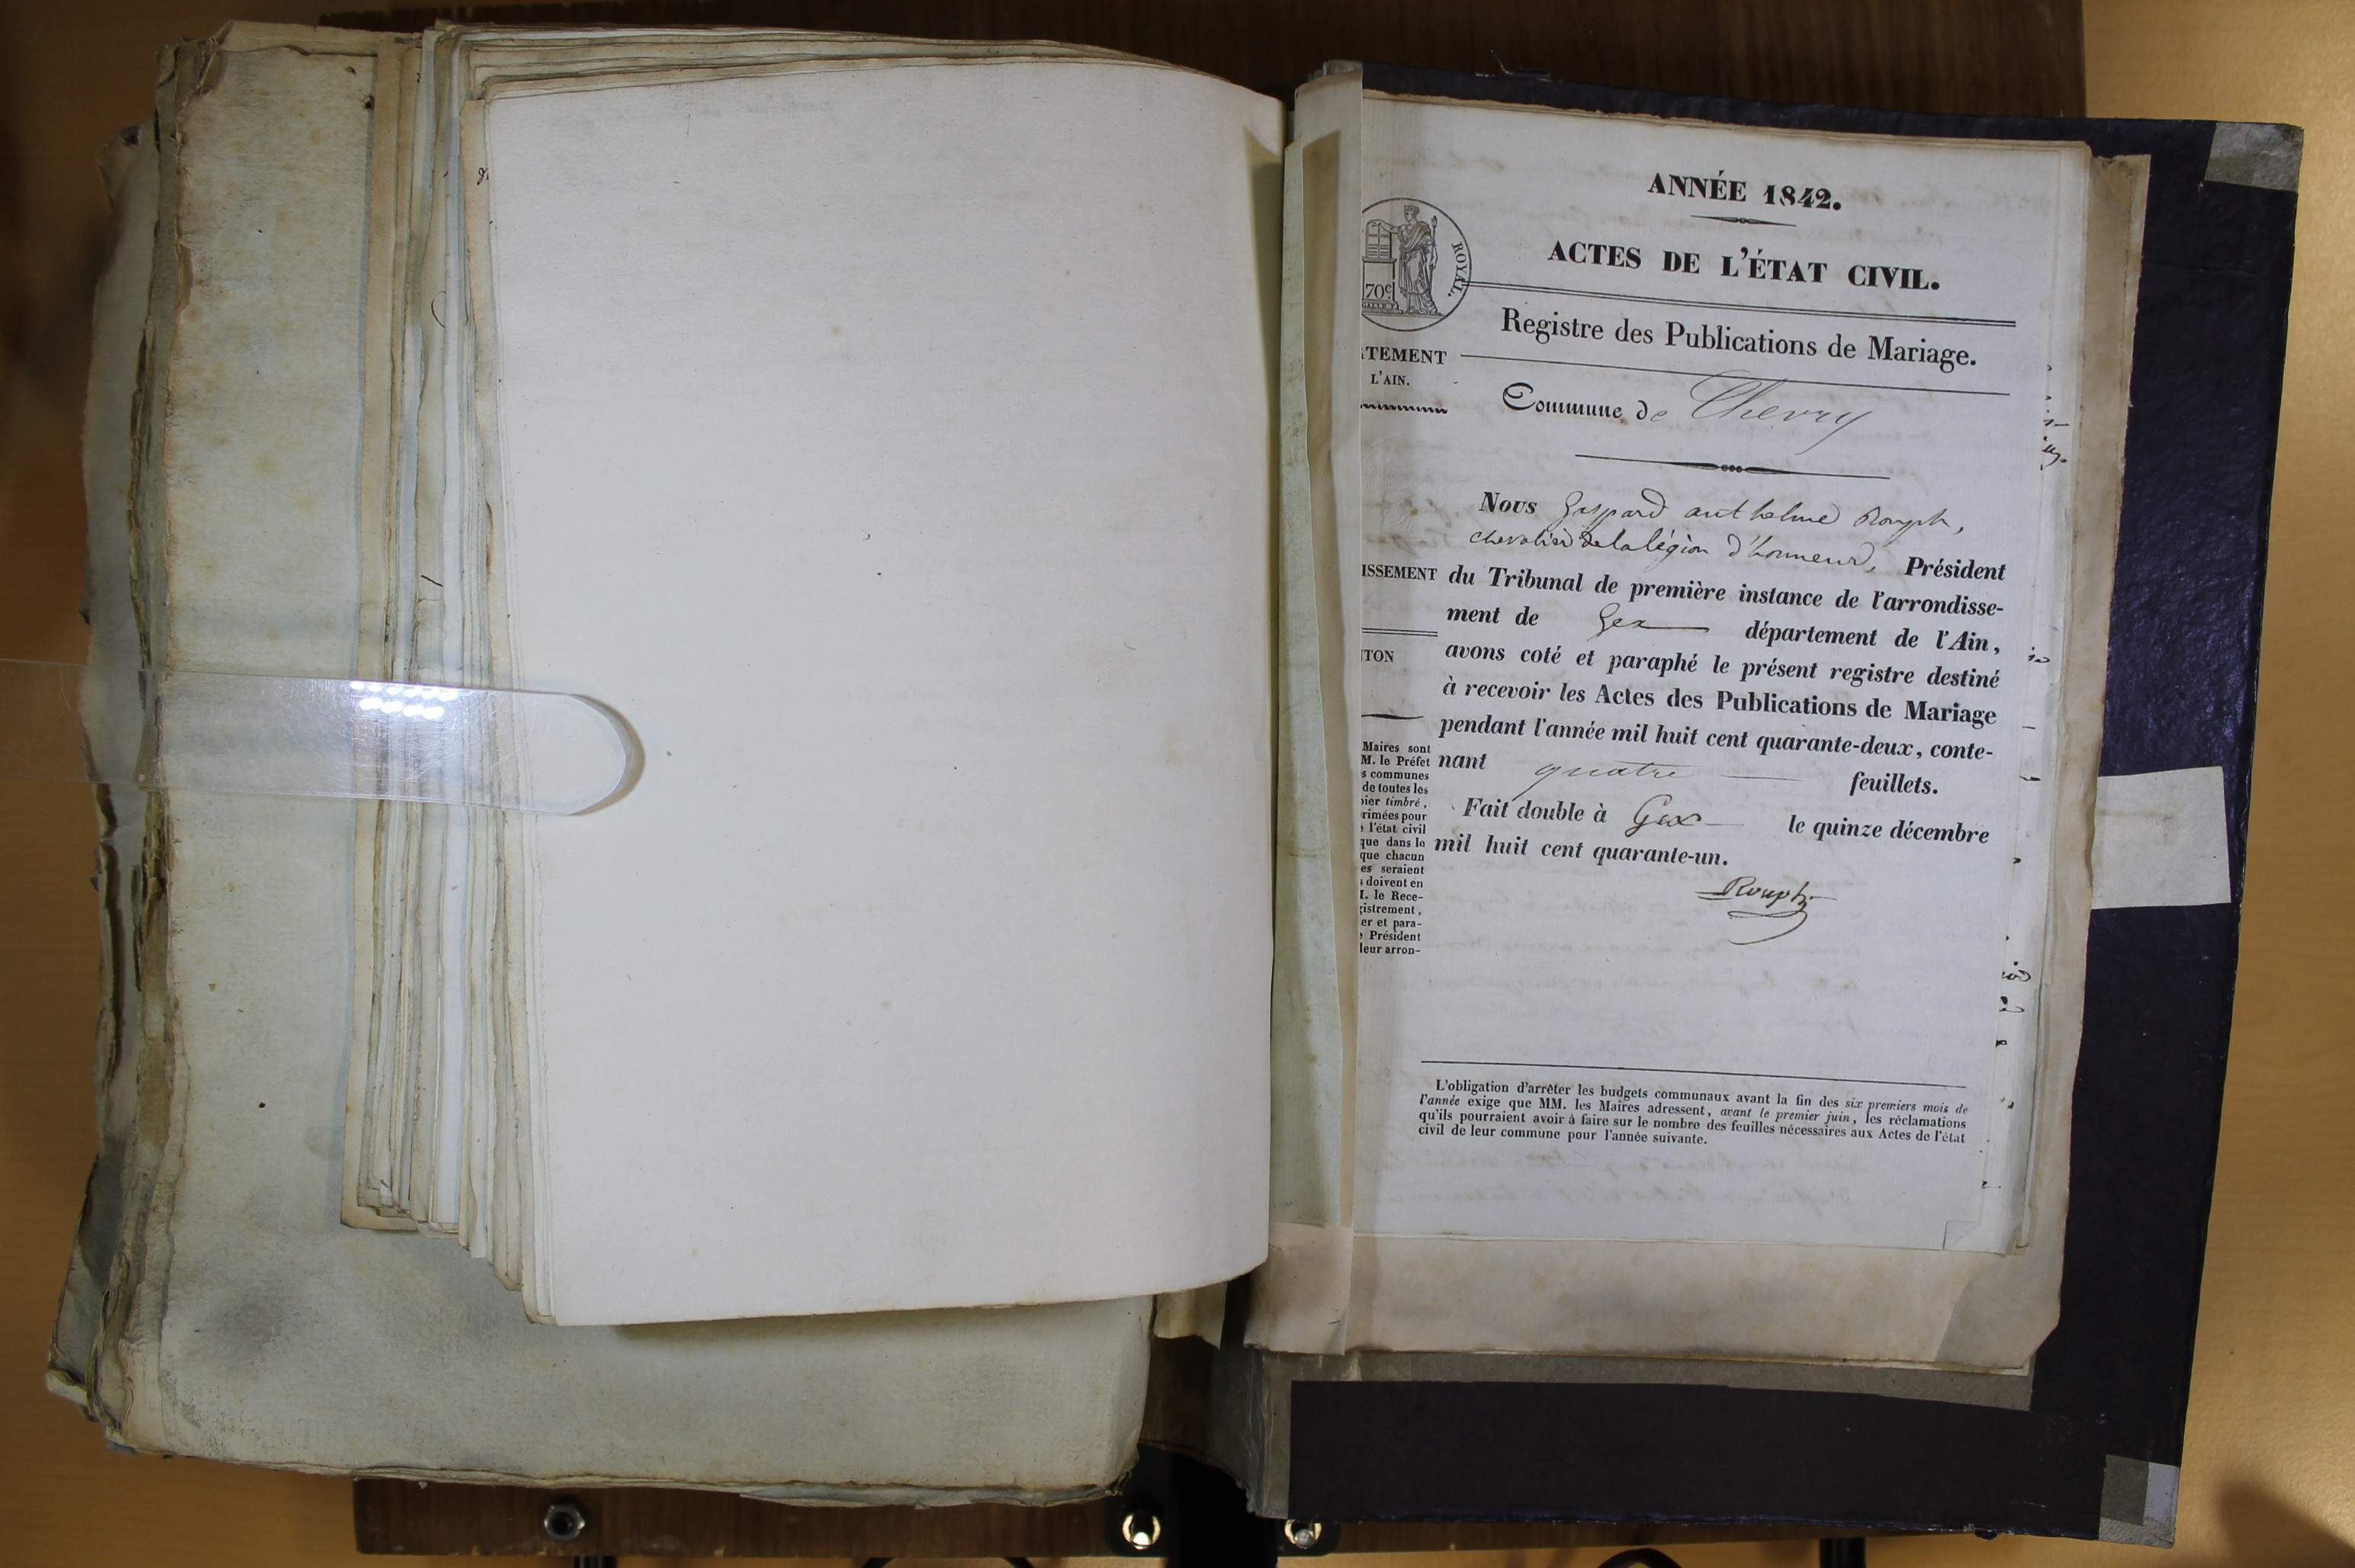 ANNÉE 1842.
ACTES DE L'ÉTAT CIVIL.
ROYAL.
70c
Registre des Publications de Mariage.
TEMENT
L'AIN.
Commune de Chevry
Nous Gaspard anthelme Rouph,
chevalier de la légion d'honneur, Président
ISSEMENT
du Tribunal de première instance de l'arrondisse-
ment de Gex département de l'Ain,
NTON
avons coté et paraphé le présent registre destiné
à recevoir les Actes des Publications de Mariage
pendant l'année mil huit cent quarante-deux, conte-
nant quatre feuillets.
Fait double à Gex le quinze décembre
mil huit cent quarante-un.
Rouph
Maires sont
M. le Préfet
s communes
de toutes les
pier timbré,
rimées pour
e l'état civil
que dans le
que chacun
es seraient
s doivent en
M. le Rece-
gistrement,
er et para-
e Président
leur arron-
L'obligation d'arrêter les budgets communaux avant la fin des six premiers mois de
l'année exige que MM. les Maires adressent, avant le premier juin, les réclamations
qu'ils pourraient avoir à faire sur le nombre des feuilles nécessaires aux Actes de l'état
civil de leur commune pour l'année suivante.